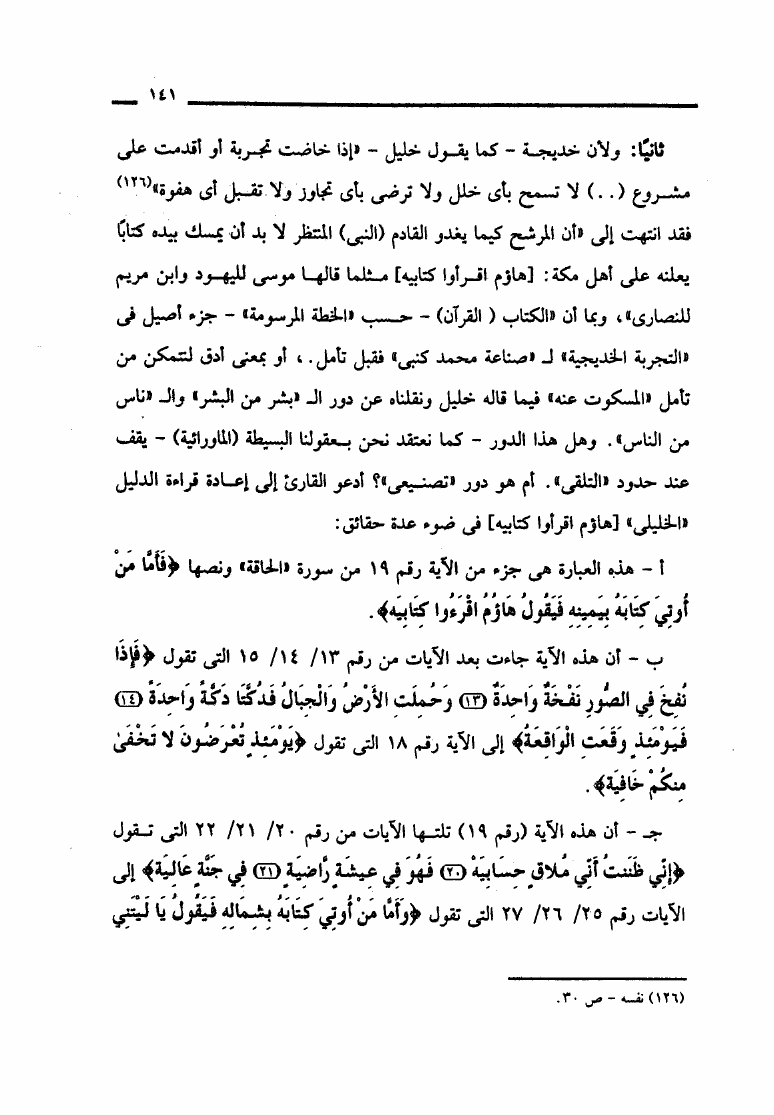 ١٤١
ثانيًا: ولأن خديجة - كما يقول خليل - «إذا خاضت تجربة أو أقدمت على
مشروع (..) لا تسمح بأى خلل ولا ترضى بأى تجاوز ولا تقبل أى هفوة»(١٢٦)
فقد انتهت إلى «أن المرشح كيما يغدو القادم (النبى) المنتظر لا بد أن يمسك بيده كتابًا
يعلنه على أهل مكة: [هاؤم اقرأوا كتابيه] مثلما قالها موسى لليهود وابن مريم
للنصارى»، وبما أن «الكتاب ( القرآن) - حسب «الخطة المرسومة» - جزء أصيل فى
«التجربة الخديجية» لـ «صناعة محمد كنبى» فقبل تأمل.، أو بمعنى أدق لنتمكن من
تأمل «المسكوت عنه» فيما قاله خليل ونقلناه عن دور الـ «بشر من البشر» والـ «ناس
من الناس». وهل هذا الدور - كما نعتقد نحن بعقولنا البسيطة (الماورائية) - يقف
عند حدود «التلقى». أم هو دور «تصنيعى»؟ أدعو القارئ إلى إعادة قراءة الدليل
«الخليلى» [هاؤم اقرأوا كتابيه] فى ضوء عدة حقائق:
أ - هذه العبارة هى جزء من الآية رقم ١٩ من سورة «الحاقة» ونصها ﴿فَأَمَّا مَنْ
أُوتِيَ كِتَابَهُ بِيَمِينِهِ فَيَقُولُ هَاؤُمُ اقْرَءُوا كِتَابِيَهْ﴾.
ب - أن هذه الآية جاءت بعد الآيات من رقم ١٣/ ١٤/ ١٥ التى تقول ﴿فَإِذَا
نُفِخَ فِي الصُّورِ نَفْخَةٌ وَاحِدَةٌ (١٣) وَحُمِلَتِ الأَرْضُ وَالْجِبَالُ فَدُكَّتَا دَكَّةً وَاحِدَةً (١٤)
فَيَوْمَئِذٍ وَقَعَتِ الْوَاقِعَةُ﴾ إلى الآية رقم ١٨ التى تقول ﴿يَوْمَئِذٍ تُعْرَضُونَ لا تَخْفَىٰ
مِنكُمْ خَافِيَةٌ﴾.
جـ - أن هذه الآية (رقم ١٩) تلتها الآيات من رقم ٢٠/ ٢١/ ٢٢ التى تقول
﴿إِنِّي ظَنَنتُ أَنِّي مُلاقٍ حِسَابِيَهْ (٢٠) فَهُوَ فِي عِيشَةٍ رَّاضِيَةٍ (٢١) فِي جَنَّةٍ عَالِيَةٍ﴾ إلى
الآيات رقم ٢٥/ ٢٦/ ٢٧ التى تقول ﴿وَأَمَّا مَنْ أُوتِيَ كِتَابَهُ بِشِمَالِهِ فَيَقُولُ يَا لَيْتَنِي
(١٢٦) نفسه - ص ٣٠.